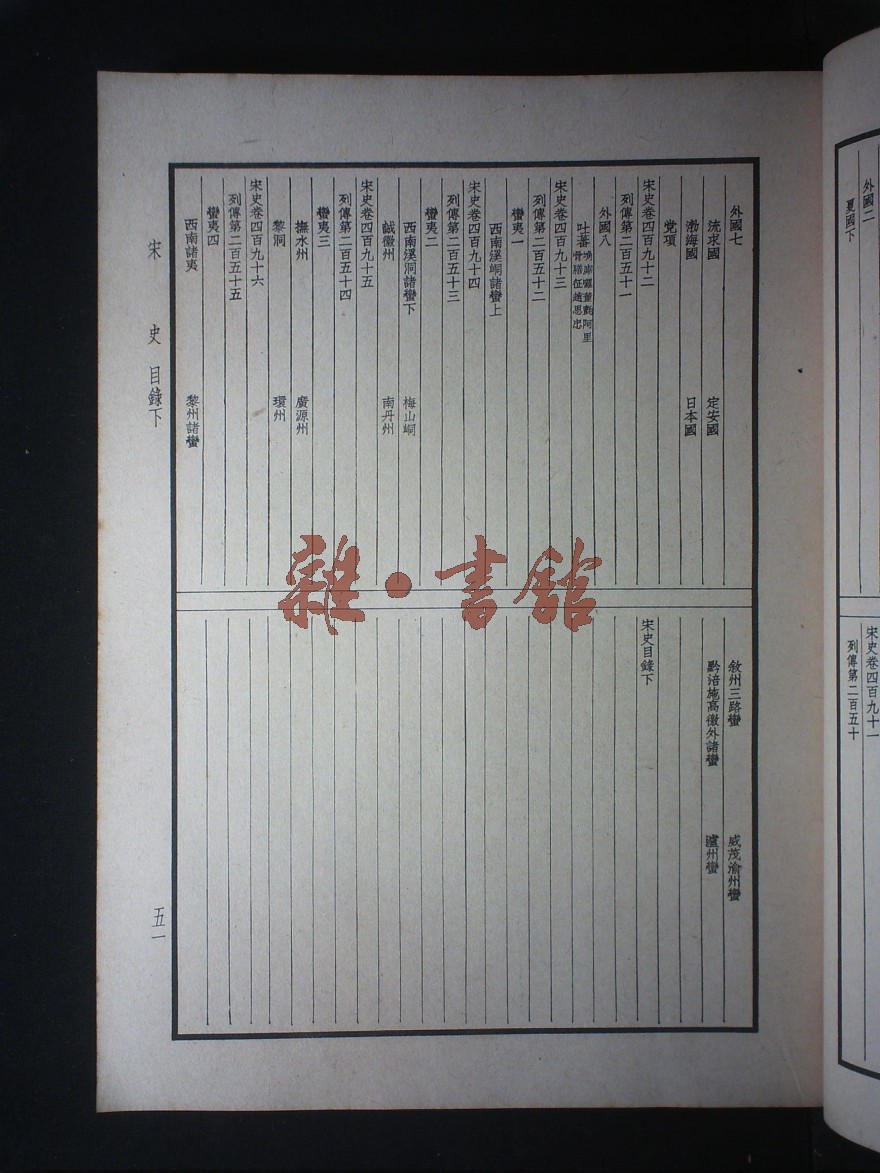 外國二
夏國下
宋史卷四百九十一
列傳第二百五十
外國七
流求國 定安國
渤海國 日本國
党項
宋史卷四百九十二
列傳第二百五十一
外國八
吐蕃 唃厮囉董氈阿里骨瞎征趙思忠
宋史卷四百九十三
列傳第二百五十二
蠻夷一
西南溪峒諸蠻上
宋史卷四百九十四
列傳第二百五十三
蠻夷二
西南溪洞諸蠻下 梅山峒
誠徽州 南丹州
宋史卷四百九十五
列傳第二百五十四
蠻夷三
撫水州 廣源州
黎洞 環州
宋史卷四百九十六
列傳第二百五十五
蠻夷四
西南諸夷 黎州諸蠻
敘州三路蠻 威茂渝州蠻
黔涪施高徼外諸蠻 瀘州蠻
宋史目錄下
宋史 目錄下
五一
雜·書館